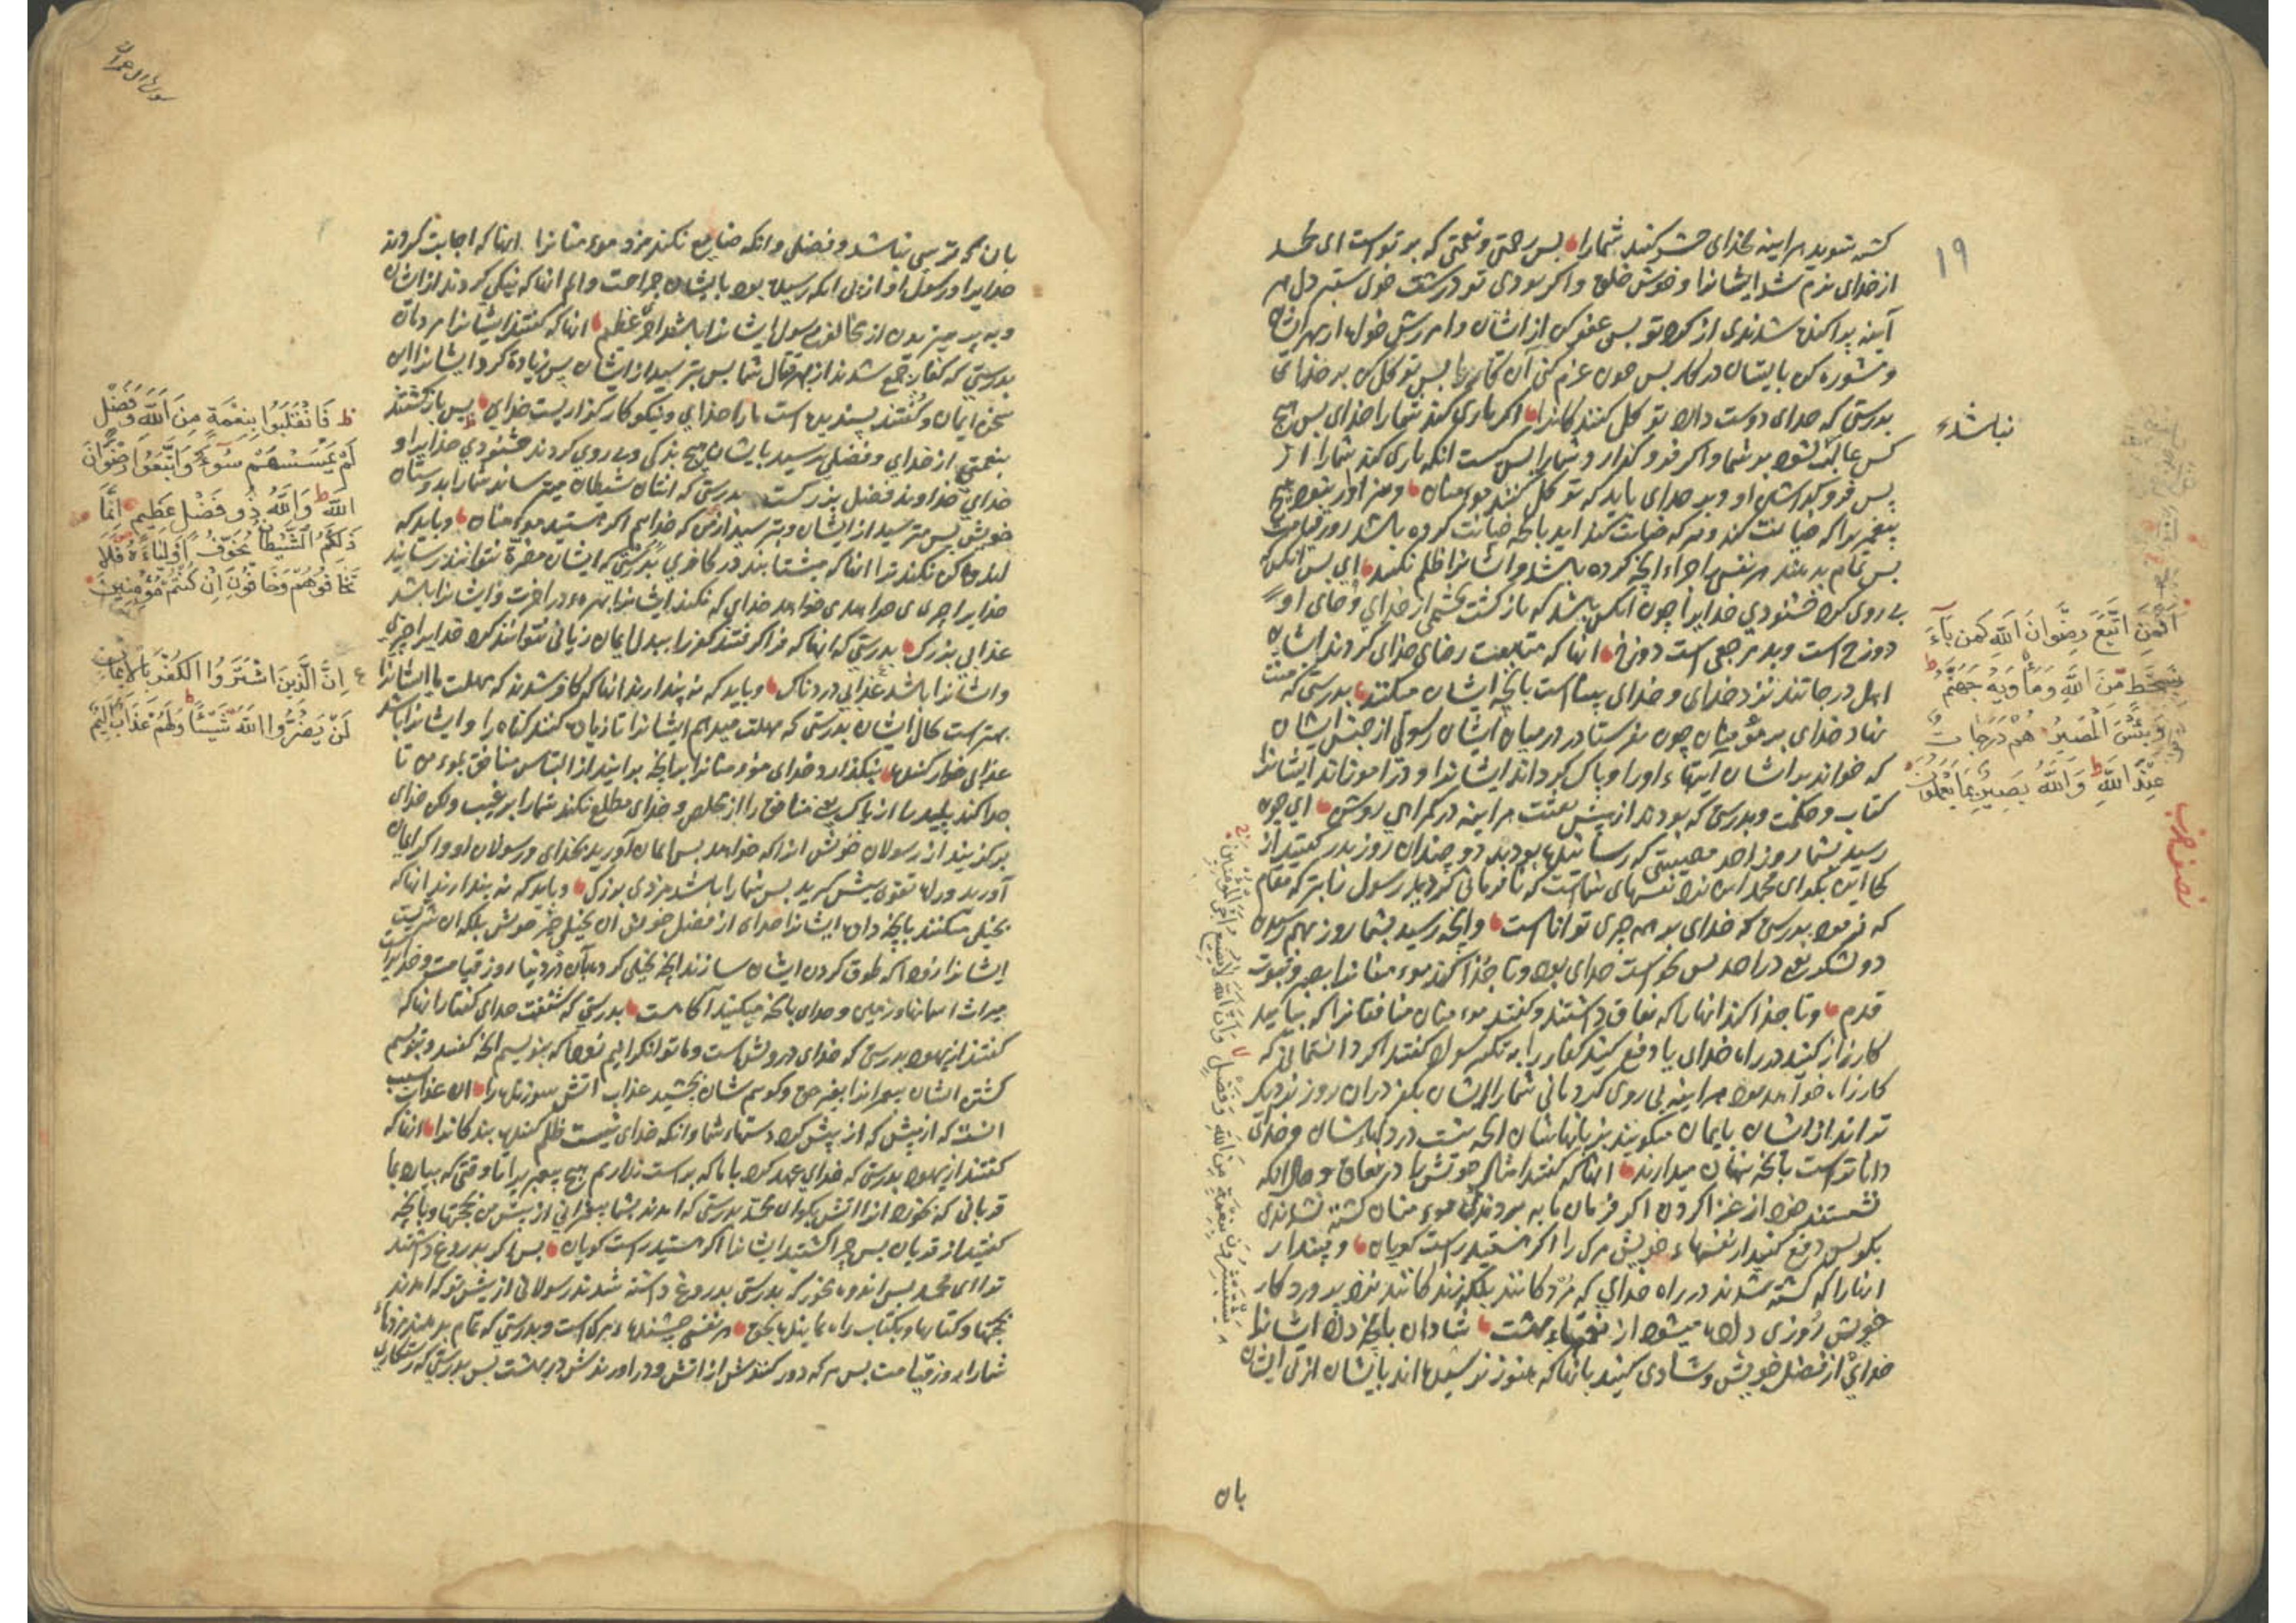 ۱۹
کشته شوید هراینه بخدای حشر کنند شمارا بس رحمتی و نعمتی که بر تواست ای محمد
از خدای نرم شد ایشانرا و خوش خلق و اکر بودی تو درشت خوی ستبر دل هر
آینه پراکنده شدندی از کرد تو بس عفو کن از ایشان و امرزش خواه از بهر ایشان
و مشوره کن بایشان در کار بس چون عزم کنی آن کار را بس توکل کن بر خدای
بدرستی که خدای دوست دارد توکل کنندکانرا اکر یاری کند شمارا خدای بس هیچ
نباشد
کس غالب نشود بر شما و اکر فرو کذارد شمارا بس کیست انکه یاری کند شمارا از
پس فرو کذاشتن او و بر خدای باید که توکل کنند موءمنان و سزاوار نبود هیچ
پیغمبر را که خیانت کند و هر که خیانت کند اید بانچه خیانت کرده باشد روز قیامت
بس تمام بدهند هر نفسی را جزاء انچه کرده باشد و ایشانرا ظلم نکنند ای بس انکس که
بی روی کرد خشنودی خدایرا چون انکس باشد که بازکشت بخشمی از خدای و جای او
دوزخ است و بد مرجعی است دوزخ انها که متابعت رضای خدای کردند ایشان
اهل درجاتند نزد خدای و خدای بیناست بانچه ایشان میکنند بدرستی که منت
نهاد خدای بر مؤمنان چون بفرستاد در میان ایشان رسولی از جنس ایشان
که خواند بر ایشان آیتهاء اورا و پاک کرداند ایشانرا و در اموزاند ایشانرا
کتاب و حکمت و بدرستی که بودند از پیش بعثت هراینه در کمراهی روشن ای چون
رسید بشما روز احد مصیبتی که رسانیده بودید دو چندان روز بدر کفتید از
کجا این بکو ای محمد این نزد نفسهای شماست که نافرمانی کردید رسول را بترک مقام
که فرمود بدرستی که خدای بر همه چیزی تواناست و انچه رسید بشما روز بهم رسیدن
دو لشکر یعنی در احد بس بخواست خدای بود و تا جدا کند موءمنانرا بصبر و ثبوت
قدم و تا جدا کند انهارا که نفاق داشتند و کفتند موءمنان منافقانرا که بیایید
کارزار کنید در راه خدای یا دفع کنید کفار را به تکثیر سواد کفتند اکر دانستمانی که
کارزار خواهد بود هراینه بی روی کردمانی شمارا ایشان بکفر دران روز نزدیک
تراند از ایشان بایمان میکویند بزبانهاشان انچه نیست در دلهاءشان و خدای
داناتر است بانچه پنهان میدارند انها که کفتند امثال خویش را در نفاق و حال انکه
نشستند خود از غزا کردن اکر فرمان ما به بردندی موءمنان کشته نشدندی
بکو بس دفع کنید از نفسهاء خویش مرک را اکر هستید راست کویان و مپندار
انانرا که کشته شدند در راه خدای که مردکانند بلکه زندکانند نزد پروردکار
خویش روزی داده میشود از نعمتهاء بهشت شادان بانچه داد ایشانرا
خدای از فضل خویش و شادی کنند بانها که هنوز نرسیده اند بایشان از پی ایشان
بان
اَفَمَنِ اتَّبَعَ رِضْوَانَ اللّٰهِ كَمَن بَآءَ
بِسَخَطٍ مِّنَ اللّٰهِ وَمَأْوٰيهُ جَهَنَّمُ
وَبِئْسَ الْمَصِيرُ هُمْ دَرَجَاتٌ
عِنْدَ اللّٰهِ وَاللّٰهُ بَصِيرٌ بِمَا يَعْمَلُونَ
نصف حزب
يَسْتَبْشِرُونَ بِنِعْمَةٍ مِنَ اللّٰهِ وَفَضْلٍ وَاَنَّ اللّٰهَ لَا يُضِيعُ اَجْرَ الْمُؤْمِنِينَ
سورة ال عمران
بان که ترسی نباشد و فضلی و انکه ضایع نکند مزد موءمنانرا انها که اجابت کردند
خدایرا و رسول او از پی انکه رسیده بود بایشان جراحت و الم انها که نیکی کردند از ایشان
و به پرهیزیدن از مخالفت رسول ایشانرا باشد اجر عظیم انها که کفتند ایشانرا مردمان
بدرستی که کفار جمع شدند از بهر قتال شما بس بترسید از ایشان پس زیاده کرد ایشانرا این
سخن ایمان و کفتند پسندیده است مارا خدای و نیکو کارکذاریست خدای پس بازکشتند
بنعمتی از خدای و فضلی نرسید بایشان هیچ بذی و بی روی کردند خشنودی خدایرا و
خدای خداوند فضل بزرکست بدرستی که انشان شیطان میترساند شمارا بدوستان
خویش بس مترسید از ایشان و بترسید از من که خدایم اکر هستید موءمنان و باید که
اندوهکن نکند ترا انها که میشتابند در کافری بدرستی که ایشان مضرة نتوانند رسانید
خدایرا چیزی میخواهد خدای که نکند ایشانرا بهرهء در اخرت و ایشانرا باشد
عذابی بزرک بدرستی که انها که فراکرفتند کفر را ببدل ایمان زیانی نتوانند کرد خدایرا چیزی
و ایشانرا باشد عذابی دردناک و باید که نه پندارند انها که کافر شدند که مهلت ما ایشانرا
بهتر است کال ایشان بدرستی که مهلت میدهیم ایشانرا تا زیاده کنند کناه را و ایشانرا باشد
عذابی خوار کننده بنکذارد خدای موءمنانرا برانچه برانید از التباس منافق بموءمن تا
جدا کند پلید را از پاک یعنی منافق را از مخلص و خدای مطلع نکند شمارا بر غیب ولکن خدای
برکزیند از رسولان خویش انرا که خواهد بس ایمان آورید بخدای و رسولان او و اکر ایمان
آورید و راه تقوی پیش کیرید بس شمارا باشد مزدی بزرک و باید که نه پندارند انها که
بخیلی میکنند بانچه داد ایشانرا خدای از فضل خویش ان بخیلی خیر خویش بلکه ان شریست
ایشانرا زود که طوق کردن ایشان سازند انچه بخیلی کردند بآن در دنیا روز قیامت و خدایراست
میراث اسمانها و زمین و خدای بانچه میکنید آکاهست بدرستی که شنفت خدای کفتار انها که
کفتند از یهود بدرستی که خدای درویش است و ما توانکرانیم زود که بنویسیم انچه کفتند و بنویسیم
کشتن ایشان پیغمبرانرا بغیر حق و کویم شان بچشید عذاب آتش سوزنده را ان عذاب بسبب
انست که از پیش که از پیش کرد دستهاء شما و انکه خدای نیست ظلم کننده بندکانرا انها که
کفتند از یهود بدرستی که خدای عهد کرد با ما که براست نداریم هیچ پیغمبر یرا تا وقتی که بیارد بما
قربانی که بخورد انرا آتش بکو ای محمد بدرستی که امدند بشما پیغمبرانی از پیش من بحجتها و بانچه
کفتید از قربان بس چرا کشتید ایشانرا اکر هستید راست کویان بس اکر بدروغ داشتند
ترا ای محمد بس اندوه مخور که بدرستی بدروغ داشته شدند رسولانی از پیش تو که امدند
بحجتها و کتابها و بکتاب راه نماینده بحق هر نفسی چشنده مرک است و بدرستی که تمام بدهند مزدهاء
شمارا روز قیامت بس هر که دور کنندش از اتش و در اورندش در بهشت بس بدرستی که رستکاری
فَانْقَلَبُوا بِنِعْمَةٍ مِنَ اللّٰهِ وَفَضْلٍ
لَمْ يَمْسَسْهُمْ سُوءٌ وَاتَّبَعُوا رِضْوَانَ
اللّٰهِ وَاللّٰهُ ذُو فَضْلٍ عَظِيمٍ اِنَّمَا
ذٰلِكُمُ الشَّيْطَانُ يُخَوِّفُ اَوْلِيَاءَهُ فَلَا
تَخَافُوهُمْ وَخَافُونِ اِنْ كُنْتُمْ مُؤْمِنِينَ
اِنَّ الَّذِينَ اشْتَرَوُا الْكُفْرَ بِالْاِيمَانِ
لَنْ يَضُرُّوا اللّٰهَ شَيْئًا وَلَهُمْ عَذَابٌ اَلِيمٌ